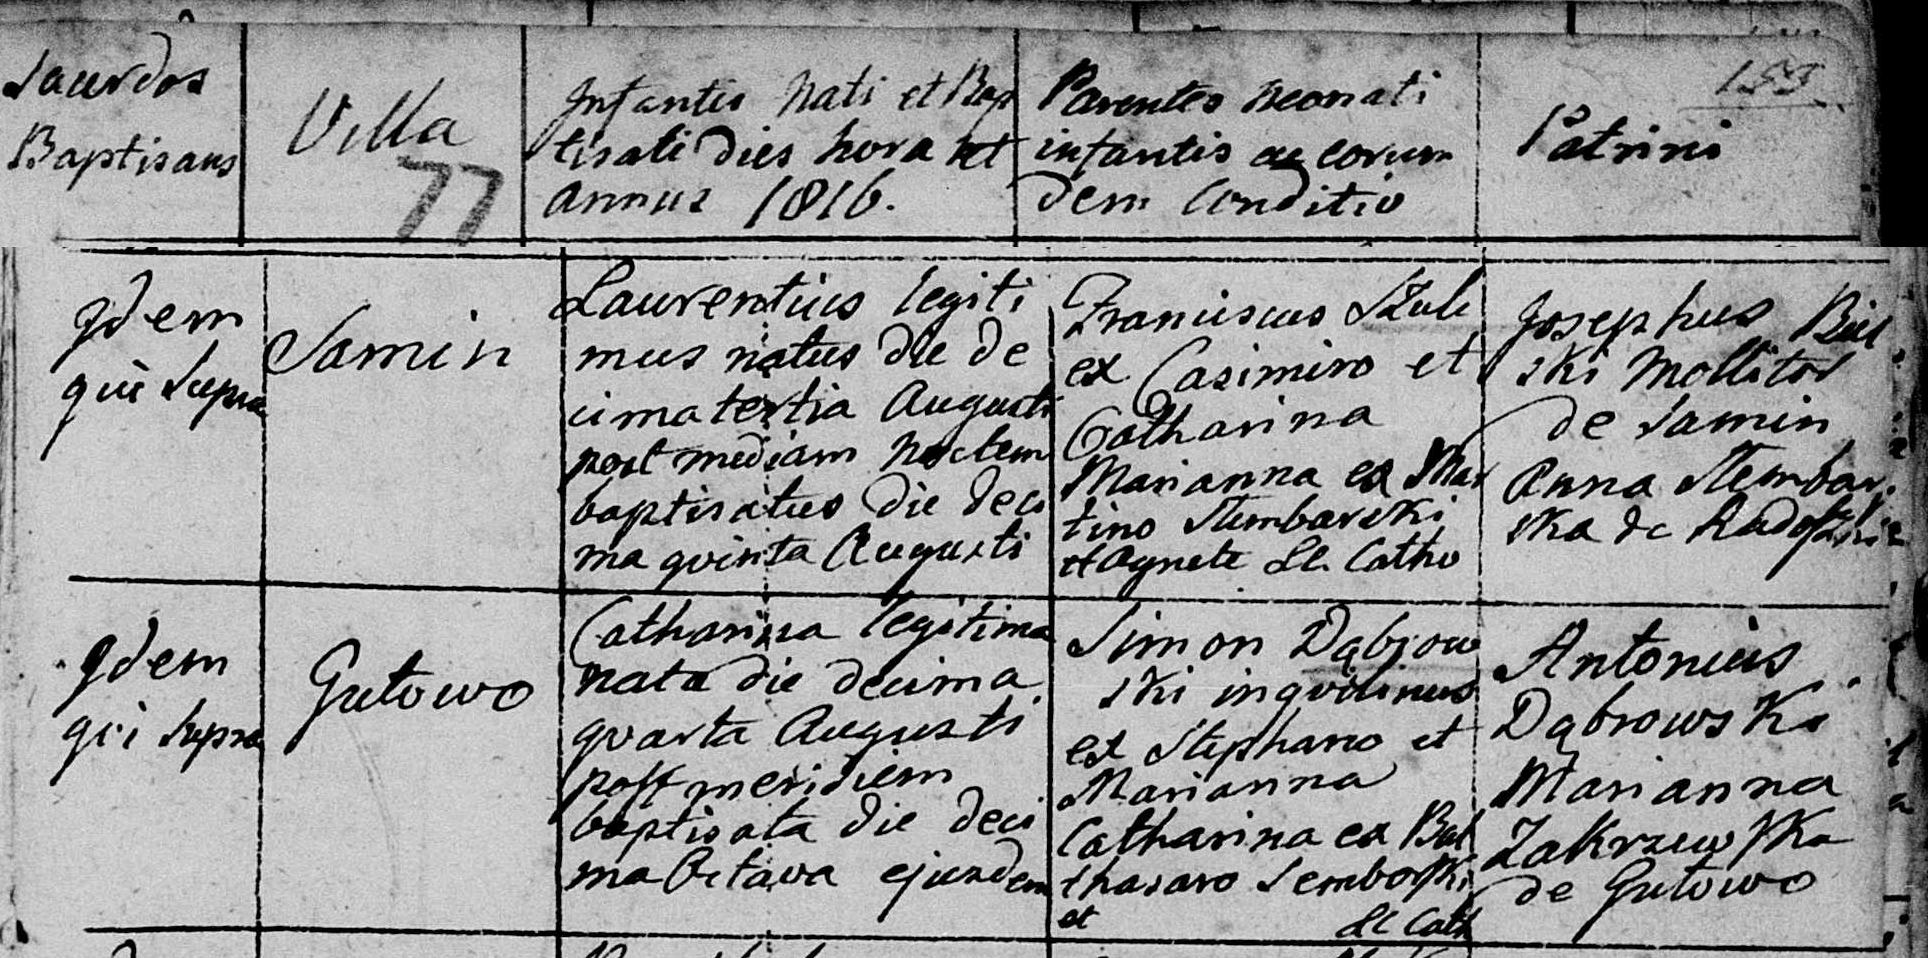 Sacerdos
Baptisans
Villa
77
Infantis Nati et Bap
tisati dies hora et
annus 1816.
Parentes Neonati
infantis ac eorum
dem Conditio
Patrini
Idem
qui supra
Samin
Laurentius legiti
mus natus die de
cima tertia Augusti
post mediam noctem
baptisatus die deci
ma qvinta Augusti
Franciscus Szulc
ex Casimiro et
Catharina
Marianna ex Mar
tino Stembarski
et Agnete
Josephus Biel
ski Mollitor
de Samin
Anna Stembar
ska de
Idem
qvi supra
Gutowo
Catharina legitima
nata die decima
qvarta Augusti
post meridiem
baptisata die deci
ma Octava ejusdem
Simon Dąbrow
ski inqvilinus
ex Stephano et
Marianna
Catharina ex Bal
thasaro Semborski
et Cath
Antonius
Dąbrowski
Marianna
Zakrzewska
de Gutowo